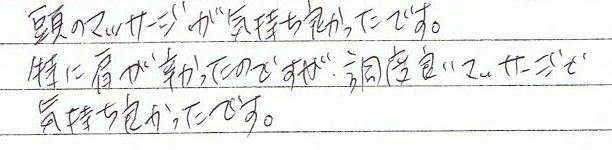 頭のマッサージが気持ち良かったです。
特に肩が辛かったのですが、調度良いマッサージで
気持ち良かったです。